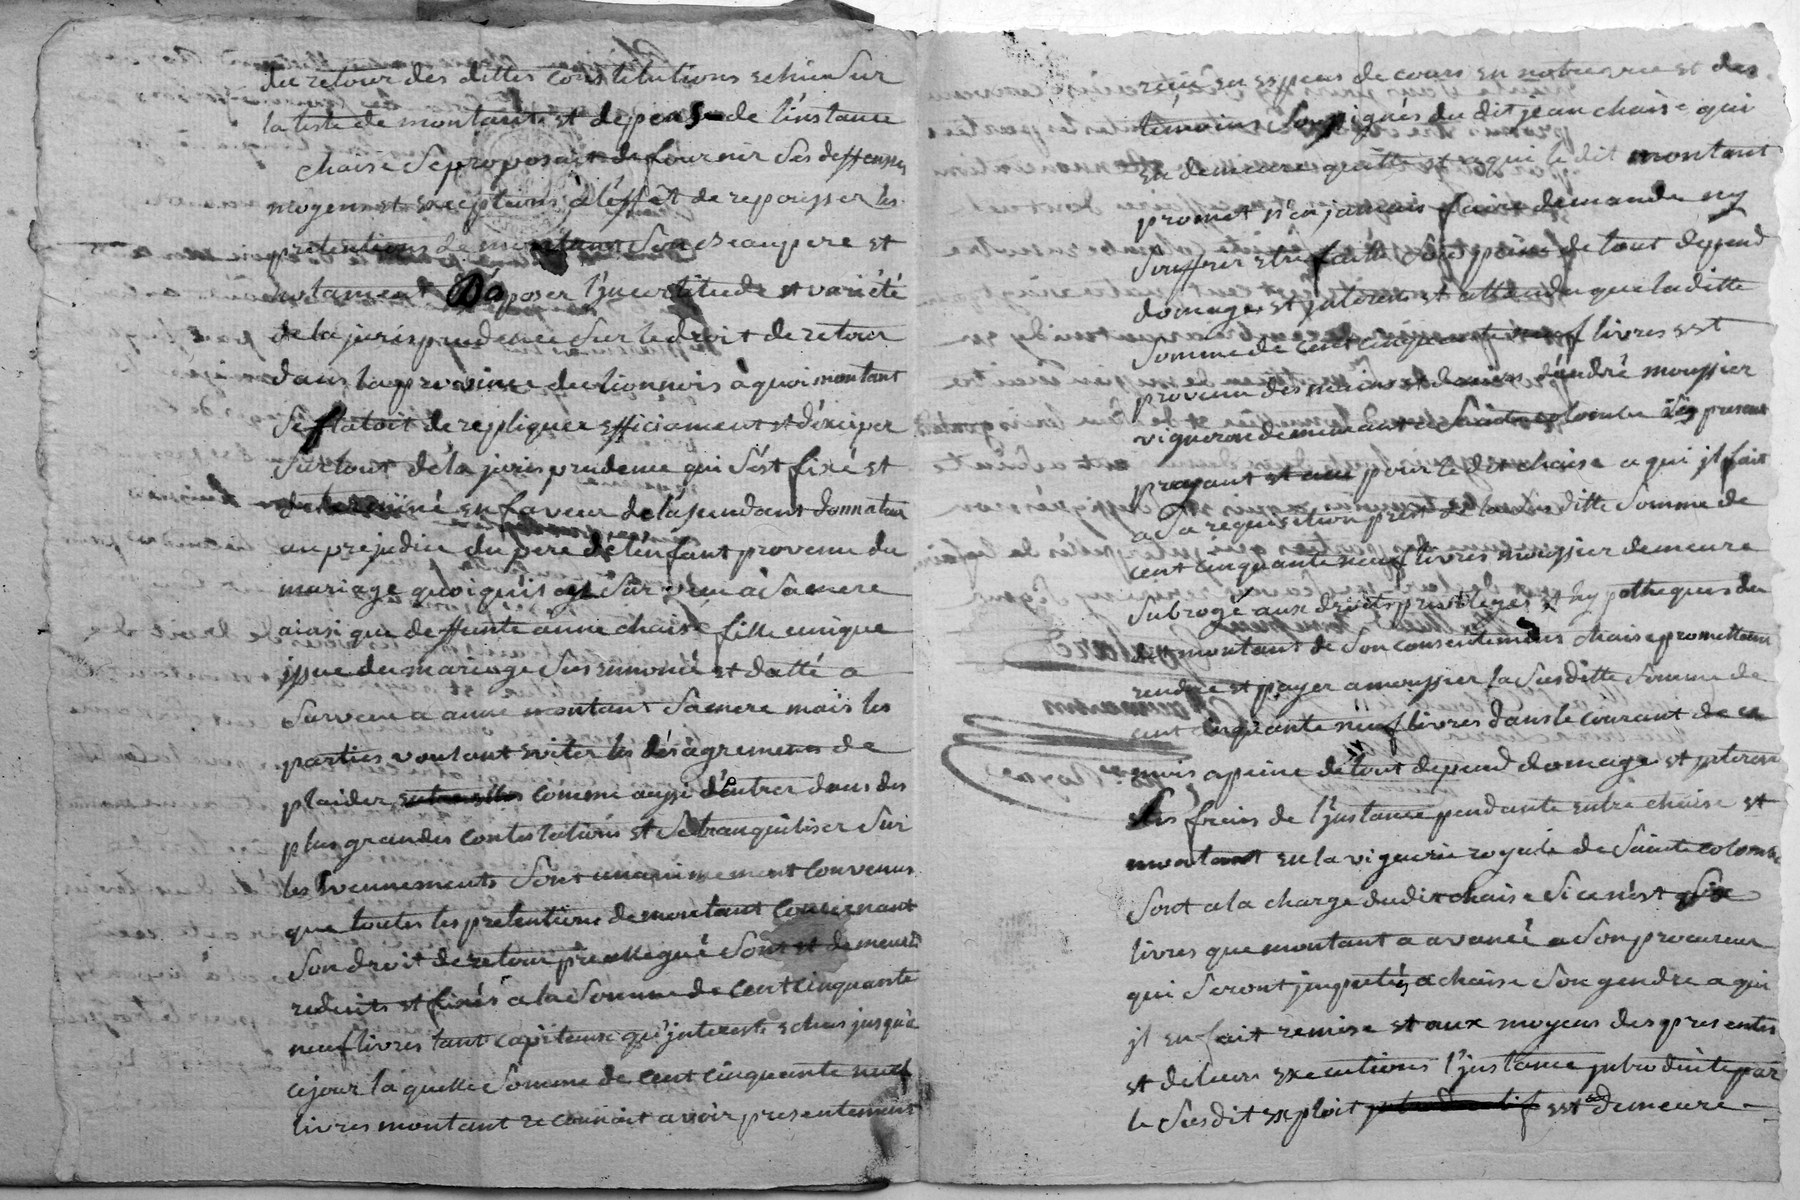 du retour des dittes constitutions echüe sur
la teste de montant et depens de l'instance
chaise se proposait de fournir ses deffenses
moyens et exceptions à l'effet de repousser les
pretentions de montant son beaupere et
notament D'oposer l'incertitude et variété
de la jurisprudence sur le droit de retour
dans la province du lionnois à quoi montant
se flatoit de repliquer efficiament et d'exciper
surtout de la jurisprudence qui s'est fixé et
determiné en faveur de l'ascendant donnateur
au prejudice du pere de l'enfant provenu du
mariage quoiqu'il aye survecu à sa mere
ainsi que deffunte anne chaise fille unique
issue du mariage susenoncé et datté a
survecu a anne montant sa mere mais les
parties voulant eviter les désagrements de
plaider entre elles comme aussi d'entrer dans des
plus grandes contestations et se tranquiliser sur
les evennements sont unanimement convenus
que toutes les pretentions de montant concernant
son droit de retour préallegué sont et demeurent
reduits et fixés a la somme de cent cinquante
neuf livres tant capitaux qu'interests echus jusqu'a
ce jour la quelle somme de cent cinquante neuf
livres montant reconnoit avoir presentement
reçüe en especes de cours en notaire et des
témoins soussignés du dit jean chaise qui
en demeure quitte et a qui le dit montant
promet n'en jamais faire demande ny
souffrir etre faitte a peine de tout depend
domages et jnterests et attendu que la ditte
somme de cent cinquante neuf livres est
provenu des mains et deniers d'andré moussier
vigneron demeurant a Sainte colombe icy present
payant pour le dit chaise a qui jl fait
a sa requisition prest de la susditte somme de
cent cinquante neuf livres moussier demeure
subrogé aux droits privileges et hypotheques du
dit montant de son consentement chaise promettant
rendre et payer a moussier la susditte somme de
cent cinquante neuf livres dans le courant de ce
mois a peine de tout depend domages et jnterests
Les freins de l'jnstance pendante entre chaise et
montant en la viguerie royale de Sainte colombe
sont a la charge du dit chaise si ce n'est six
livres que montant a avancé a son procureur
qui seront jmputés a chaise son gendre a qui
jl en fait remise et aux moyens des presentes
et de leurs executions l'jnstance jntroduite par
le susdit exploit jntroductif est demeure